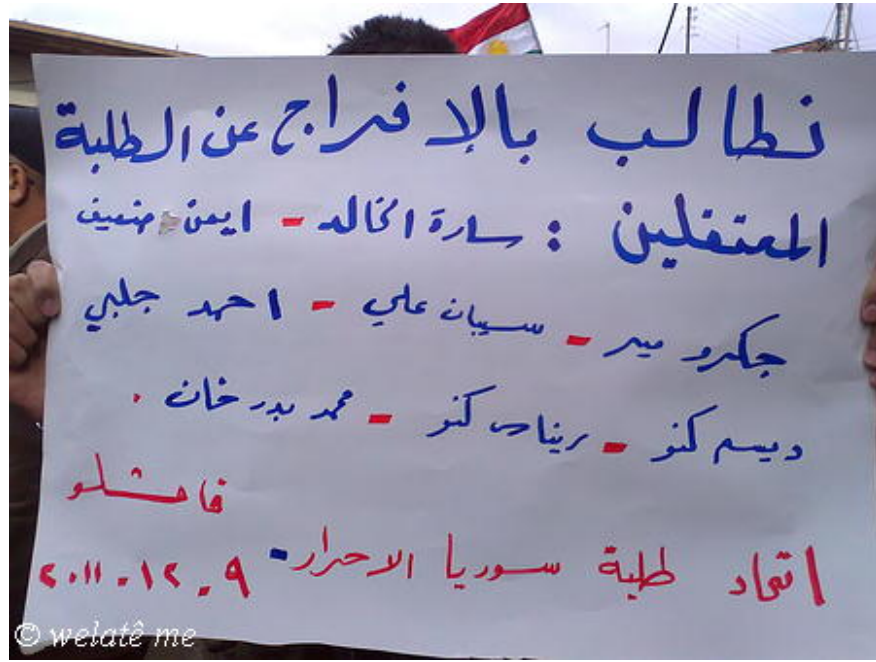 نطالب بالإفراج عن الطلبة
المعتقلين : سارة الخالد - ايمن ضعيف
جكرو مير - سيبان علي - احمد جلبي
ديسم كنو - ريناس كنو - محمد بدرخان .
قامشلو
اتحاد طلبة سوريا الاحرار - ٩ . ١٢ - ٢٠١١
© welatê me